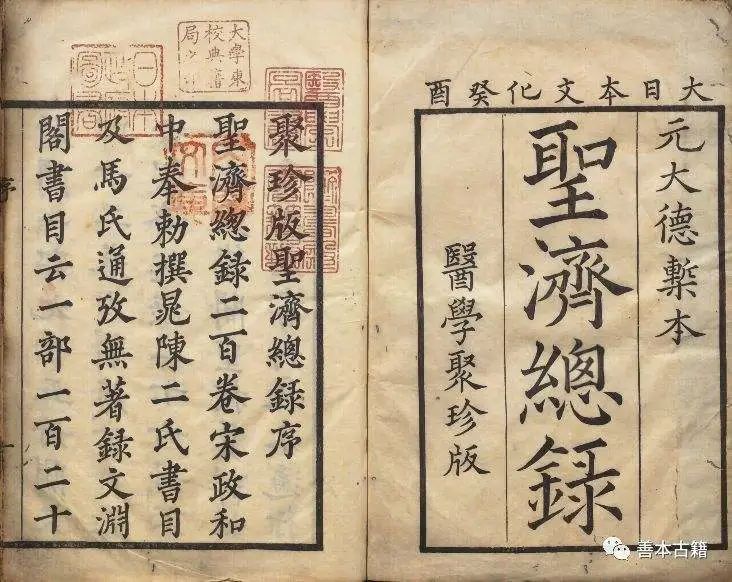 大日本文化癸酉
元大德槧本
聖濟總録
醫學聚珍版
聚珍版聖濟總録序
聖濟總録二百卷宋政和
中奉勅撰晁陳二氏書目
及馬氏通攷無著録文淵
閣書目云一部一百二十
序
大學東
校典書
局
善本古籍